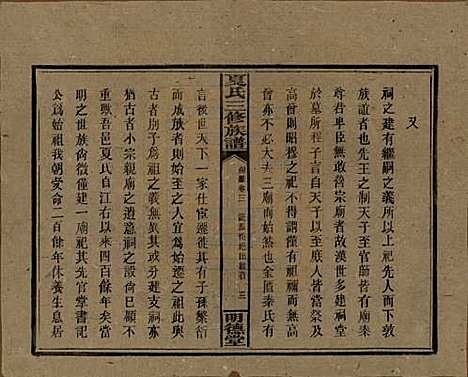 又
祠之建有繼嗣之義所以上祀先人而下敦
族誼者也先王之制天子至官師皆有廟秦
尊君卑臣無敢營宗廟者故漢世多建祠堂
於墓所程子言自天子以至庶人皆當祭及
高曾則昭穆之祀不得謂僅有祖禰而高
曾之必大夫三廟而始然也金匱秦氏有
夏氏三修族譜
明德堂
言後世天下一家仕宦遷徙其有子孫繁衍
而成族者則始遷之人宜為始遷之祖此與
古者別子為祖
猶古者小宗親廟之遺意祠之立也不已顯
重歟吾邑夏氏自江右以來四百餘年矣當
明之世族尚微僅建一廟祀其先官堂書記
公為始祖我朝受命二百餘年休養生息居